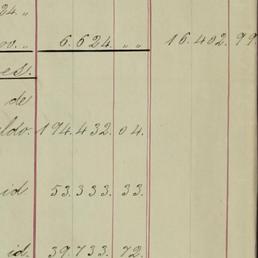 24. "
00. " 6.624 " " 16.402.99
es.
de
ldo. 194.432.04.
id 53.333.33.
id. 39.733.72.